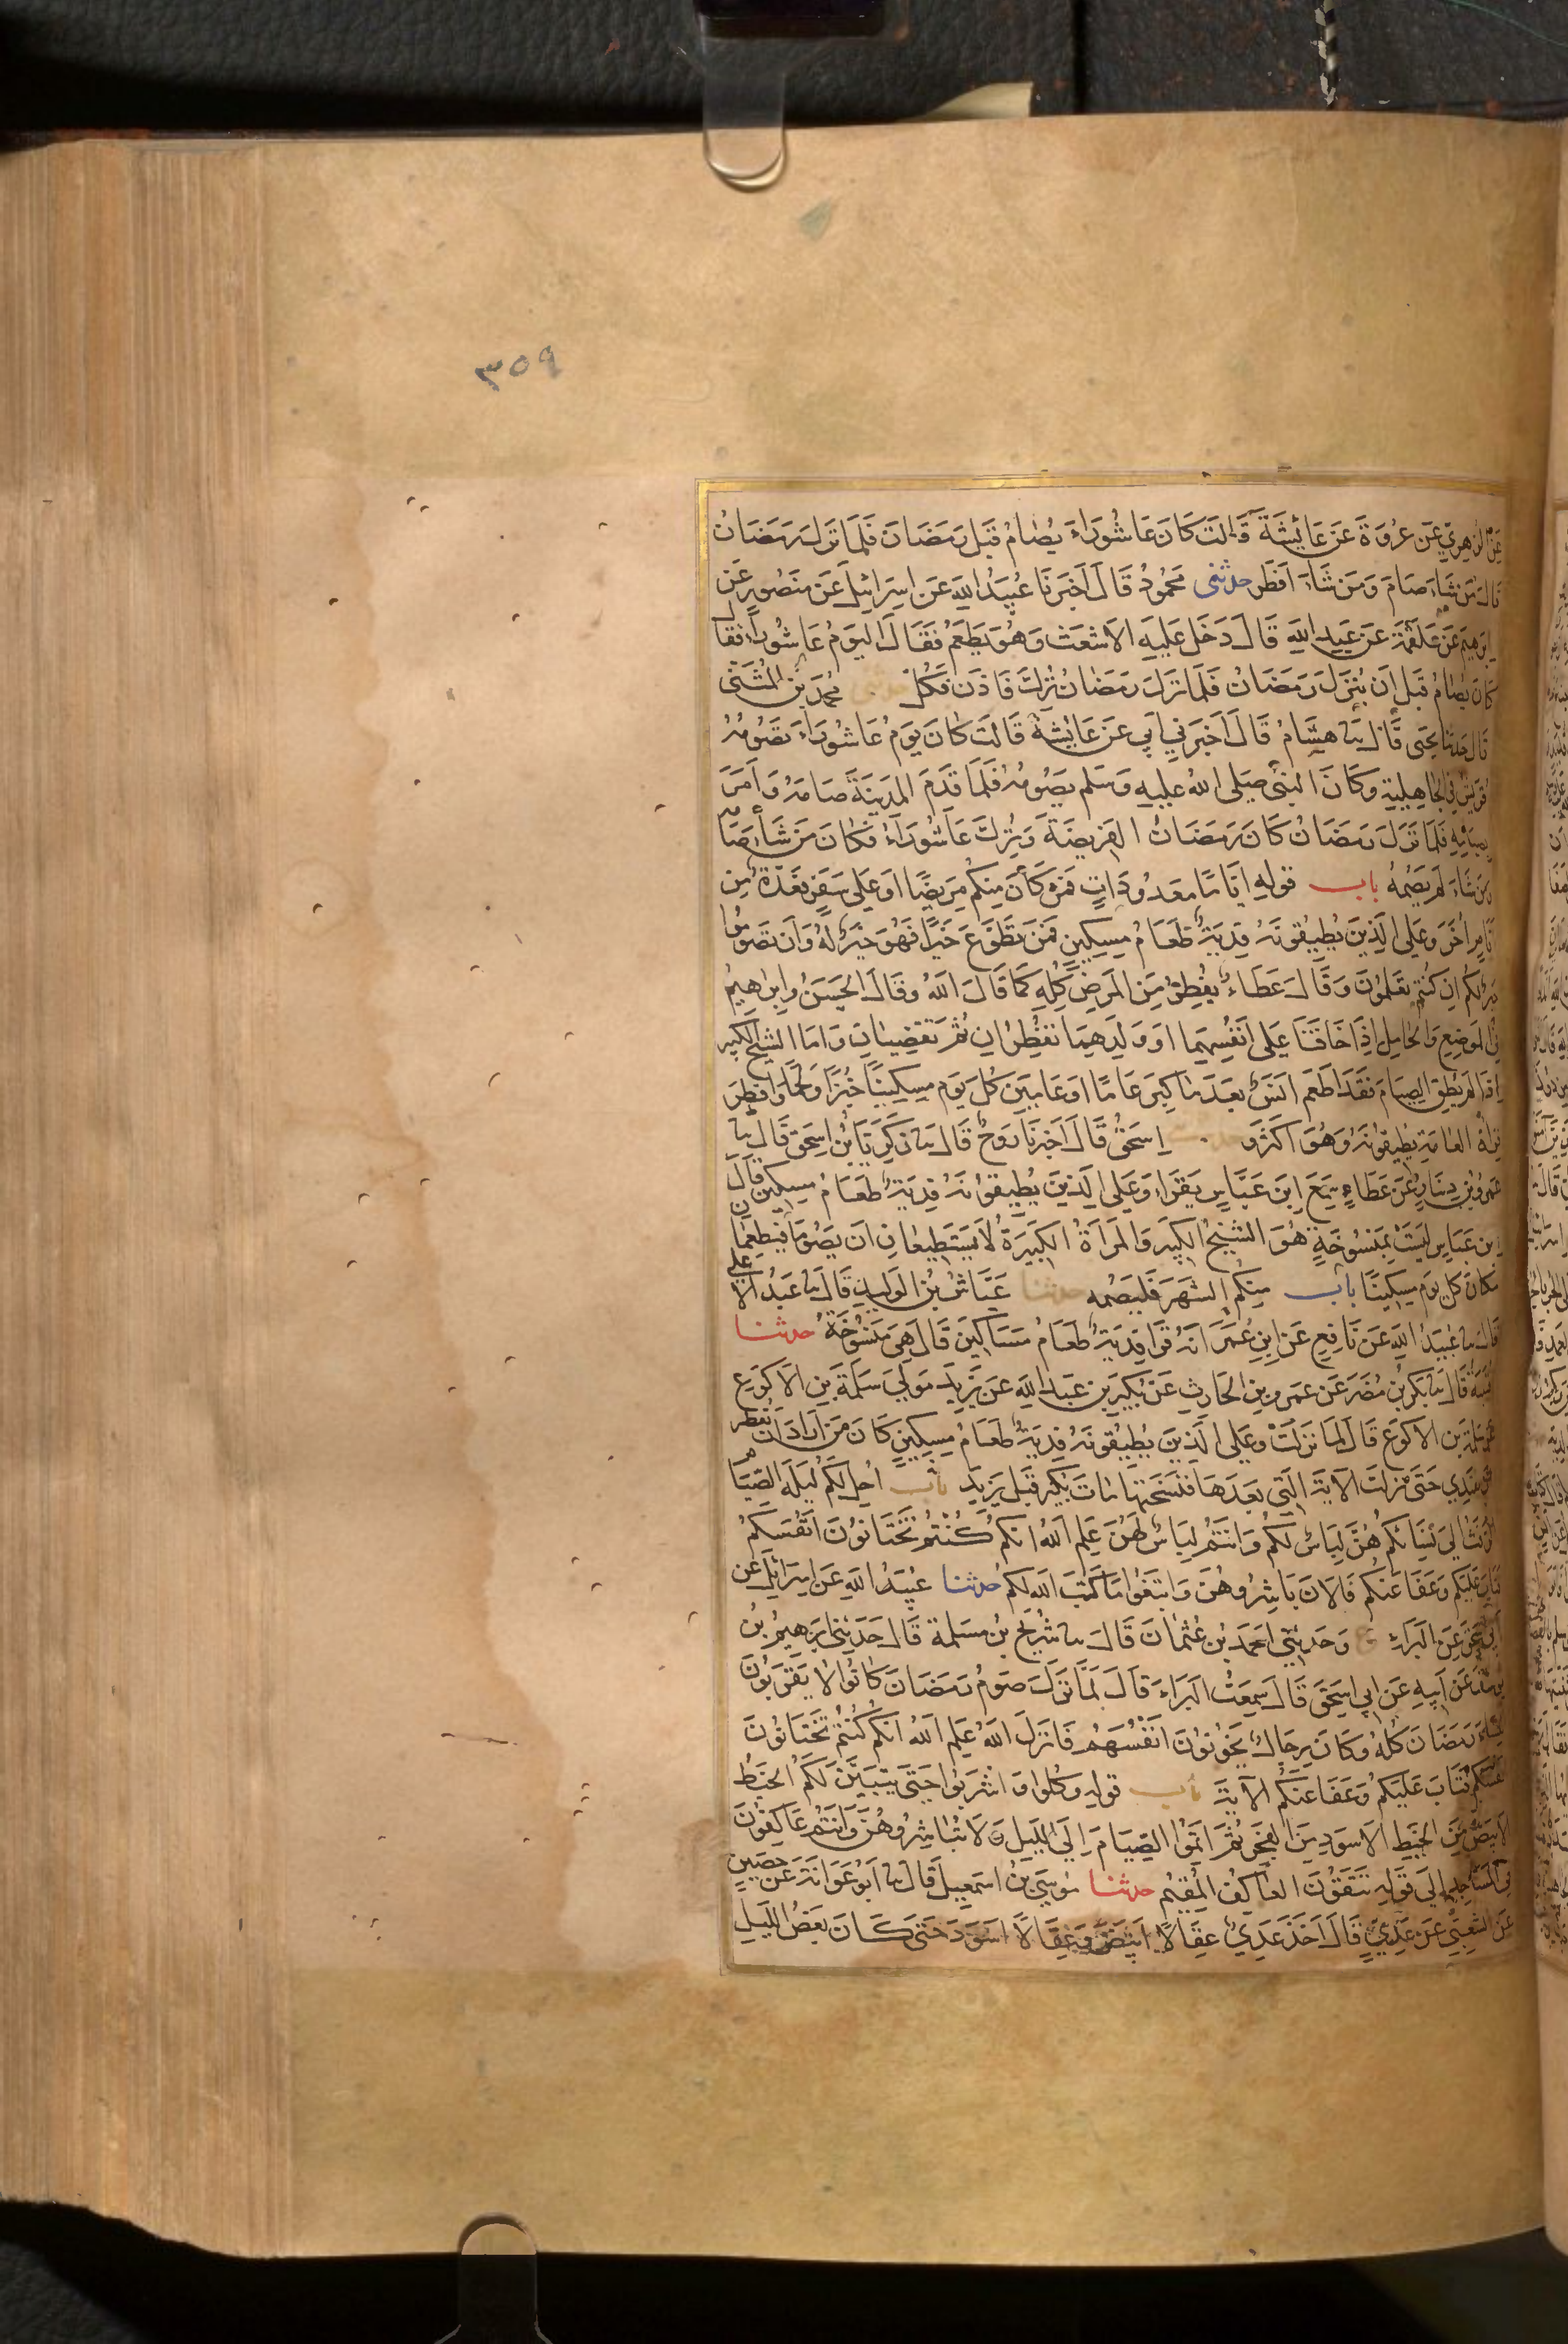 ٣٥٩
عَنِ الزُّهْرِيِّ عَن عُرْوَةَ عَن عَائِشَةَ قَالَت كَانَ عَاشُورَاءُ يُصَامُ قَبْلَ رَمَضَانَ فَلَمَّا نَزَلَ رَمَضَانُ
قَالَ مَن شَاءَ صَامَ وَمَن شَاءَ اَفْطَرَ حدثنى مَحْمُودٌ قَالَ اَخْبَرَنَا عُبَيْدُ اللهِ عَن اِسْرَائِيلَ عَن مَنصُورٍ عَن
اِبرهِيمَ عَن عَلقَمَةَ عَن عَبدِ اللهِ قَالَ دَخَلَ عَلَيهِ الاَشْعَثُ وَهُوَ يَطْعَمُ فَقَالَ اليَومُ عَاشُورَاءُ فَقَالَ
كَانَ يُصَامُ قَبلَ اَن يُنْزَلَ رَمَضَانُ فَلَمَّا نَزَلَ رَمَضَانُ تُرِكَ فَادْنُ فَكُلْ محمد بن المُثَنّٰى
قَالَ حدثنا يحيى قَالَ ثنا هِشَامٌ قَالَ اَخْبَرَنِي اَبِي عَن عَائِشَةَ قَالَت كَانَ يَومُ عَاشُورَاءَ تَصُومُهُ
قُرَيشٌ فِي الجَاهِلِيَّةِ وَكَانَ النبيُّ صَلى اللهُ عليهِ وَسَلم يَصُومُهُ فَلَمَّا قَدِمَ المَدِينَةَ صَامَهُ وَاَمَرَ
بِصِيَامِهِ فَلَمَّا نَزَلَ رَمَضَانُ كَانَ رَمَضَانُ الفَرِيضَةَ وَتُرِكَ عَاشُورَاءُ فَكَانَ مَن شَاءَ صَامَهُ
وَمَن شَاءَ لَم يَصُمْهُ باب قولهِ اَيَّامًا مَعدُودَاتٍ فَمَن كَانَ مِنكُم مَرِيضًا اَو عَلَى سَفَرٍ فَعِدَّةٌ مِن
اَيَّامٍ اُخَرَ وَعَلَى الَّذِينَ يُطِيقُونَهُ فِديَةٌ طَعَامُ مِسكِينٍ فَمَن تَطَوَّعَ خَيرًا فَهُوَ خَيرٌ لَهُ وَاَن تَصُومُوا
خَيرٌ لَكُم اِن كُنتُم تَعلَمُونَ وَقَالَ عَطَاءٌ يُفطِرُ مِنَ المَرَضِ كُلِّهِ كَمَا قَالَ اللهُ وقَالَ الحَسَنُ وَاِبرَاهِيمُ
فِي المُرضِعِ وَالحَامِلِ اِذَا خَافَتَا عَلَى اَنفُسِهِمَا اَو وَلَدِهِمَا تُفطِرَانِ ثُمَّ تَقضِيَانِ وَاَمَّا الشَّيخُ الكَبِيرُ
اِذَا لَم يُطِقِ الصِّيَامَ فَقَد اَطعَمَ اَنَسٌ بَعدَ مَا كَبِرَ عَامًا اَو عَامَينِ كُلَّ يَومٍ مِسكِينًا خُبزًا وَلَحمًا وَاَفطَرَ
قِرَاءَةُ العَامَّةِ يُطِيقُونَهُ وَهُوَ اَكثَرُ و اِسحٰقُ قَالَ اَخبَرَنَا رَوحٌ قَالَ ثنا زَكَرِيَّا بْنُ اِسحٰقَ قَالَ ثنا
عَمرُو بنُ دِينَارٍ عَن عَطَاءٍ سَمِعَ ابنَ عَبَّاسٍ يَقرَأُ وَعَلَى الَّذِينَ يُطِيقُونَهُ فِديَةٌ طَعَامُ مِسكِينٍ قَالَ
ابنُ عَبَّاسٍ لَيسَتْ بِمَنسُوخَةٍ هُوَ الشَّيخُ الكَبِيرُ وَالمَرأَةُ الكَبِيرَةُ لَا يَستَطِيعَانِ اَن يَصُومَا فَيُطعِمَانِ
مَكَانَ كُلِّ يَومٍ مِسكِينًا باب مِنكُمُ الشَّهرَ فَليَصُمهُ حدثنا عَيَّاشُ بنُ الوَلِيدِ قَالَ ثنا عَبدُ الاَعلى
قَالَ ثنا عُبَيدُ اللهِ عَن نَافِعٍ عَن ابنِ عُمَرَ اَنَّهُ قَرَا فِديَةٌ طَعَامُ مَسَاكِينَ قَالَ هِيَ مَنسُوخَةٌ حدثنا
قُتَيبَةُ قَالَ ثنا بَكرُ بنُ مُضَرَ عَن عَمرِو بنِ الحَارِثِ عَن بُكَيرِ بنِ عَبدِ اللهِ عَن يَزِيدَ مَولَى سَلَمَةَ بنِ الاَكوَعِ
عَن سَلَمَةَ بنِ الاَكوَعِ قَالَ لَمَّا نَزَلَتْ وَعَلَى الَّذِينَ يُطِيقُونَهُ فِديَةٌ طَعَامُ مِسكِينٍ كَانَ مَن اَرَادَ اَن يُفطِرَ
وَيَفتَدِي حَتَّى نَزَلَتِ الايَةُ الَّتِي بَعدَهَا فَنَسَخَتهَا مَاتَ بُكَيرٌ قَبلَ يَزِيدَ باب اُحِلَّ لَكُم لَيلَةَ الصِّيَامِ
الرَّفَثُ اِلَى نِسَائِكُم هُنَّ لِبَاسٌ لَكُم وَاَنتُم لِبَاسٌ لَهُنَّ عَلِمَ اللهُ اَنَّكُم كُنْتُم تَختَانُونَ اَنفُسَكُم
فَتَابَ عَلَيكُم وَعَفَا عَنكُم فَالانَ بَاشِرُوهُنَّ وَابتَغُوا مَا كَتَبَ اللهُ لَكُم حدثنا عُبَيدُ اللهِ عَن اِسرَائِيلَ عَن
اَبِي اسحٰقَ عَنِ البَرَاءِ ح وَحَدَّثَنِي اَحمَدُ بنُ عُثمَانَ قَالَ ثنا شُرَيحُ بنُ مَسلَمَةَ قَالَ حَدَّثَنِي اِبرٰهِيمُ بنُ
يُوسُفَ عَن اَبِيهِ عَن اَبِي اِسحٰقَ قَالَ سَمِعتُ البَرَاءَ قَالَ لَمَّا نَزَلَ صَومُ رَمَضَانَ كَانُوا لَا يَقرَبُونَ
النِّسَاءَ رَمَضَانَ كُلَّهُ وَكَانَ رِجَالٌ يَخُونُونَ اَنفُسَهُم فَاَنزَلَ اللهُ عَلِمَ اللهُ اَنَّكُم كُنتُم تَختَانُونَ
اَنفُسَكُم فَتَابَ عَلَيكُم وَعَفَا عَنكُم الايَةَ باب قوله وَكُلُوا وَاشرَبُوا حَتَّى يَتَبَيَّنَ لَكُمُ الخَيطُ
الاَبيَضُ مِنَ الخَيطِ الاَسوَدِ مِنَ الفَجرِ ثُمَّ اَتِمُّوا الصِّيَامَ اِلَى اللَّيلِ وَلَا تُبَاشِرُوهُنَّ وَاَنتُم عَاكِفُونَ
فِي المَسَاجِدِ اِلَى قَولِهِ تَتَّقُونَ العَاكِفُ المُقِيمُ حدثنا مُوسَى بنُ اِسمٰعِيلَ قَالَ ثنا اَبُو عَوَانَةَ عَن حُصَينٍ
عَنِ الشَّعبِيِّ عَن عَدِيٍّ قَالَ اَخَذَ عَدِيٌّ عِقَالًا اَبيَضَ وَعِقَالًا اَسوَدَ حَتَّى كَانَ بَعضُ اللَّيلِ